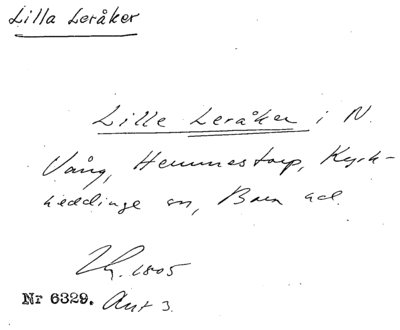 Lilla Leråker
Lille Leråker i N.
Vång, Hemmestorp, Kyrk-
heddinge sn, Bara hd.
1805
Nr 6329. Akt 3.